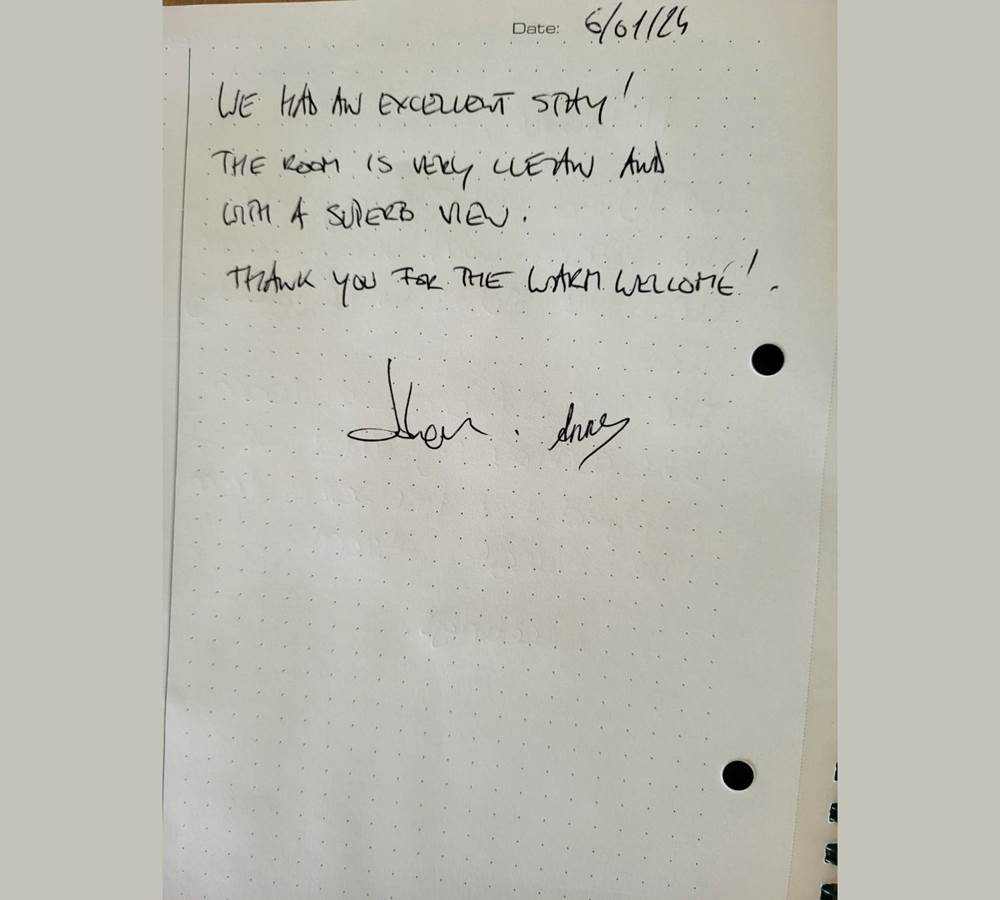 Date: 6/01/24
WE HAD AN EXCELLENT STAY!
THE ROOM IS VERY CLEAN AND
WITH A SUPERB VIEW.
THANK YOU FOR THE WARM WELCOME!.